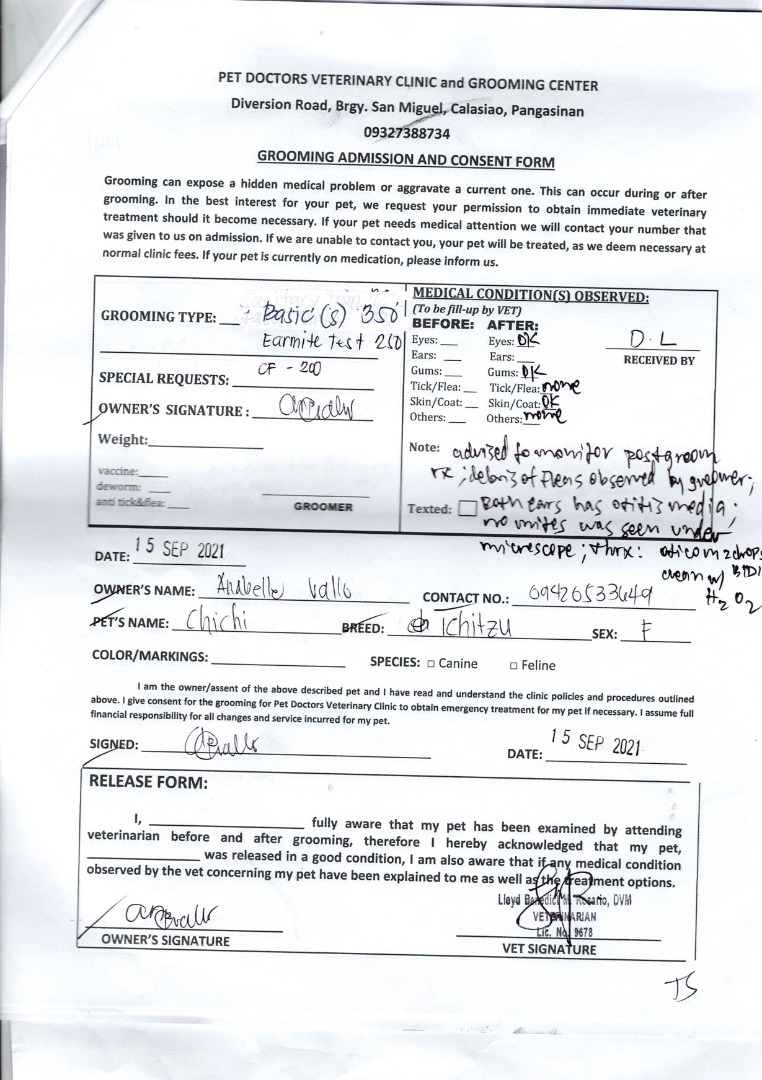 PET DOCTORS VETERINARY CLINIC and GROOMING CENTER
Diversion Road, Brgy. San Miguel, Calasiao, Pangasinan
09327388734
GROOMING ADMISSION AND CONSENT FORM
Grooming can expose a hidden medical problem or aggravate a current one. This can occur during or after
grooming. In the best interest for your pet, we request your permission to obtain immediate veterinary
treatment should it become necessary. If your pet needs medical attention we will contact your number that
was given to us on admission. If we are unable to contact you, your pet will be treated, as we deem necessary at
normal clinic fees. If your pet is currently on medication, please inform us.
GROOMING TYPE: Basic (s) 350
Earmite Test 250
SPECIAL REQUESTS: CF - 200
OWNER'S SIGNATURE :
Weight:
vaccine:
deworm:
anti tick&flea:
GROOMER
MEDICAL CONDITION(S) OBSERVED:
(To be fill-up by VET)
BEFORE: AFTER:
Eyes: Eyes: OK
Ears: Ears:
Gums: Gums: OK
Tick/Flea: Tick/Flea: none
Skin/Coat: Skin/Coat: OK
Others: Others: none
D. L
RECEIVED BY
Note: advised to monitor postgroom
rx; debris of fleas observed by groomer;
Texted: Both ears has otitis media;
no mites was seen under
microscope; thrx: oticom 2drops
clean w/ BID
H2O2
DATE: 15 SEP 2021
OWNER'S NAME: Anabelle Vallo CONTACT NO.: 09426533649
PET'S NAME: Chichi BREED: Ichitzu SEX: F
COLOR/MARKINGS: SPECIES: □ Canine □ Feline
I am the owner/assent of the above described pet and I have read and understand the clinic policies and procedures outlined
above. I give consent for the grooming for Pet Doctors Veterinary Clinic to obtain emergency treatment for my pet if necessary. I assume full
financial responsibility for all changes and service incurred for my pet.
SIGNED: DATE: 15 SEP 2021
RELEASE FORM:
I, fully aware that my pet has been examined by attending
veterinarian before and after grooming, therefore I hereby acknowledged that my pet,
was released in a good condition, I am also aware that if any medical condition
observed by the vet concerning my pet have been explained to me as well as the treatment options.
Lloyd Benedict M. Rosario, DVM
VETERINARIAN
Lic. No. 9678
OWNER'S SIGNATURE
VET SIGNATURE
TS